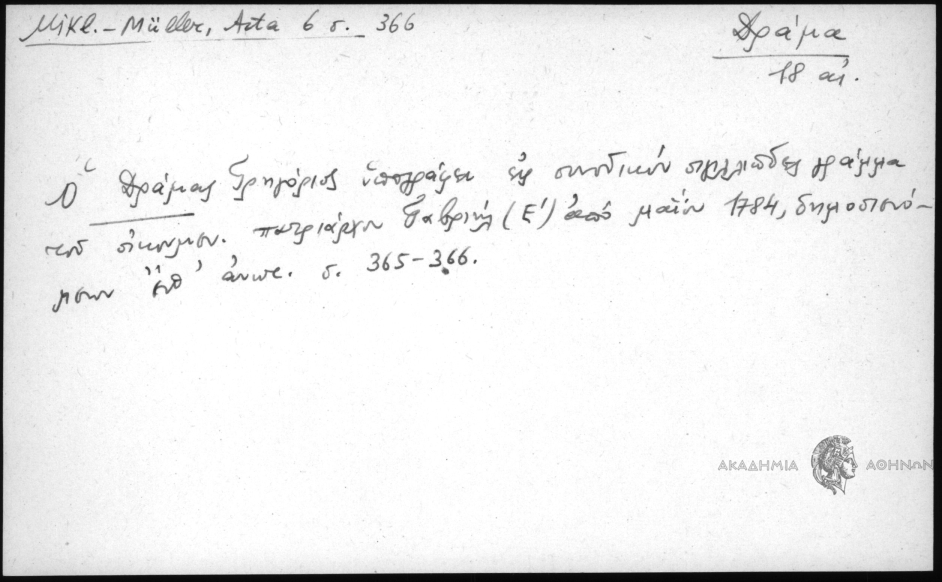 Mikl.-Müller, Acta 6 σ. 366
Δράμα
18 αἰ.
Ὁ Δράμας Γρηγόριος ὑπογράφει εἰς συνοδικὸν σιγιλλιῶδες γράμμα
τοῦ οἰκουμεν. πατριάρχου Γαβριὴλ (Ε΄) ἀπὸ μαΐου 1784, δημοσιευό-
μενον ἀνωτ. σ. 365-366.
ΑΚΑΔΗΜΙΑ ΑΘΗΝΩΝ